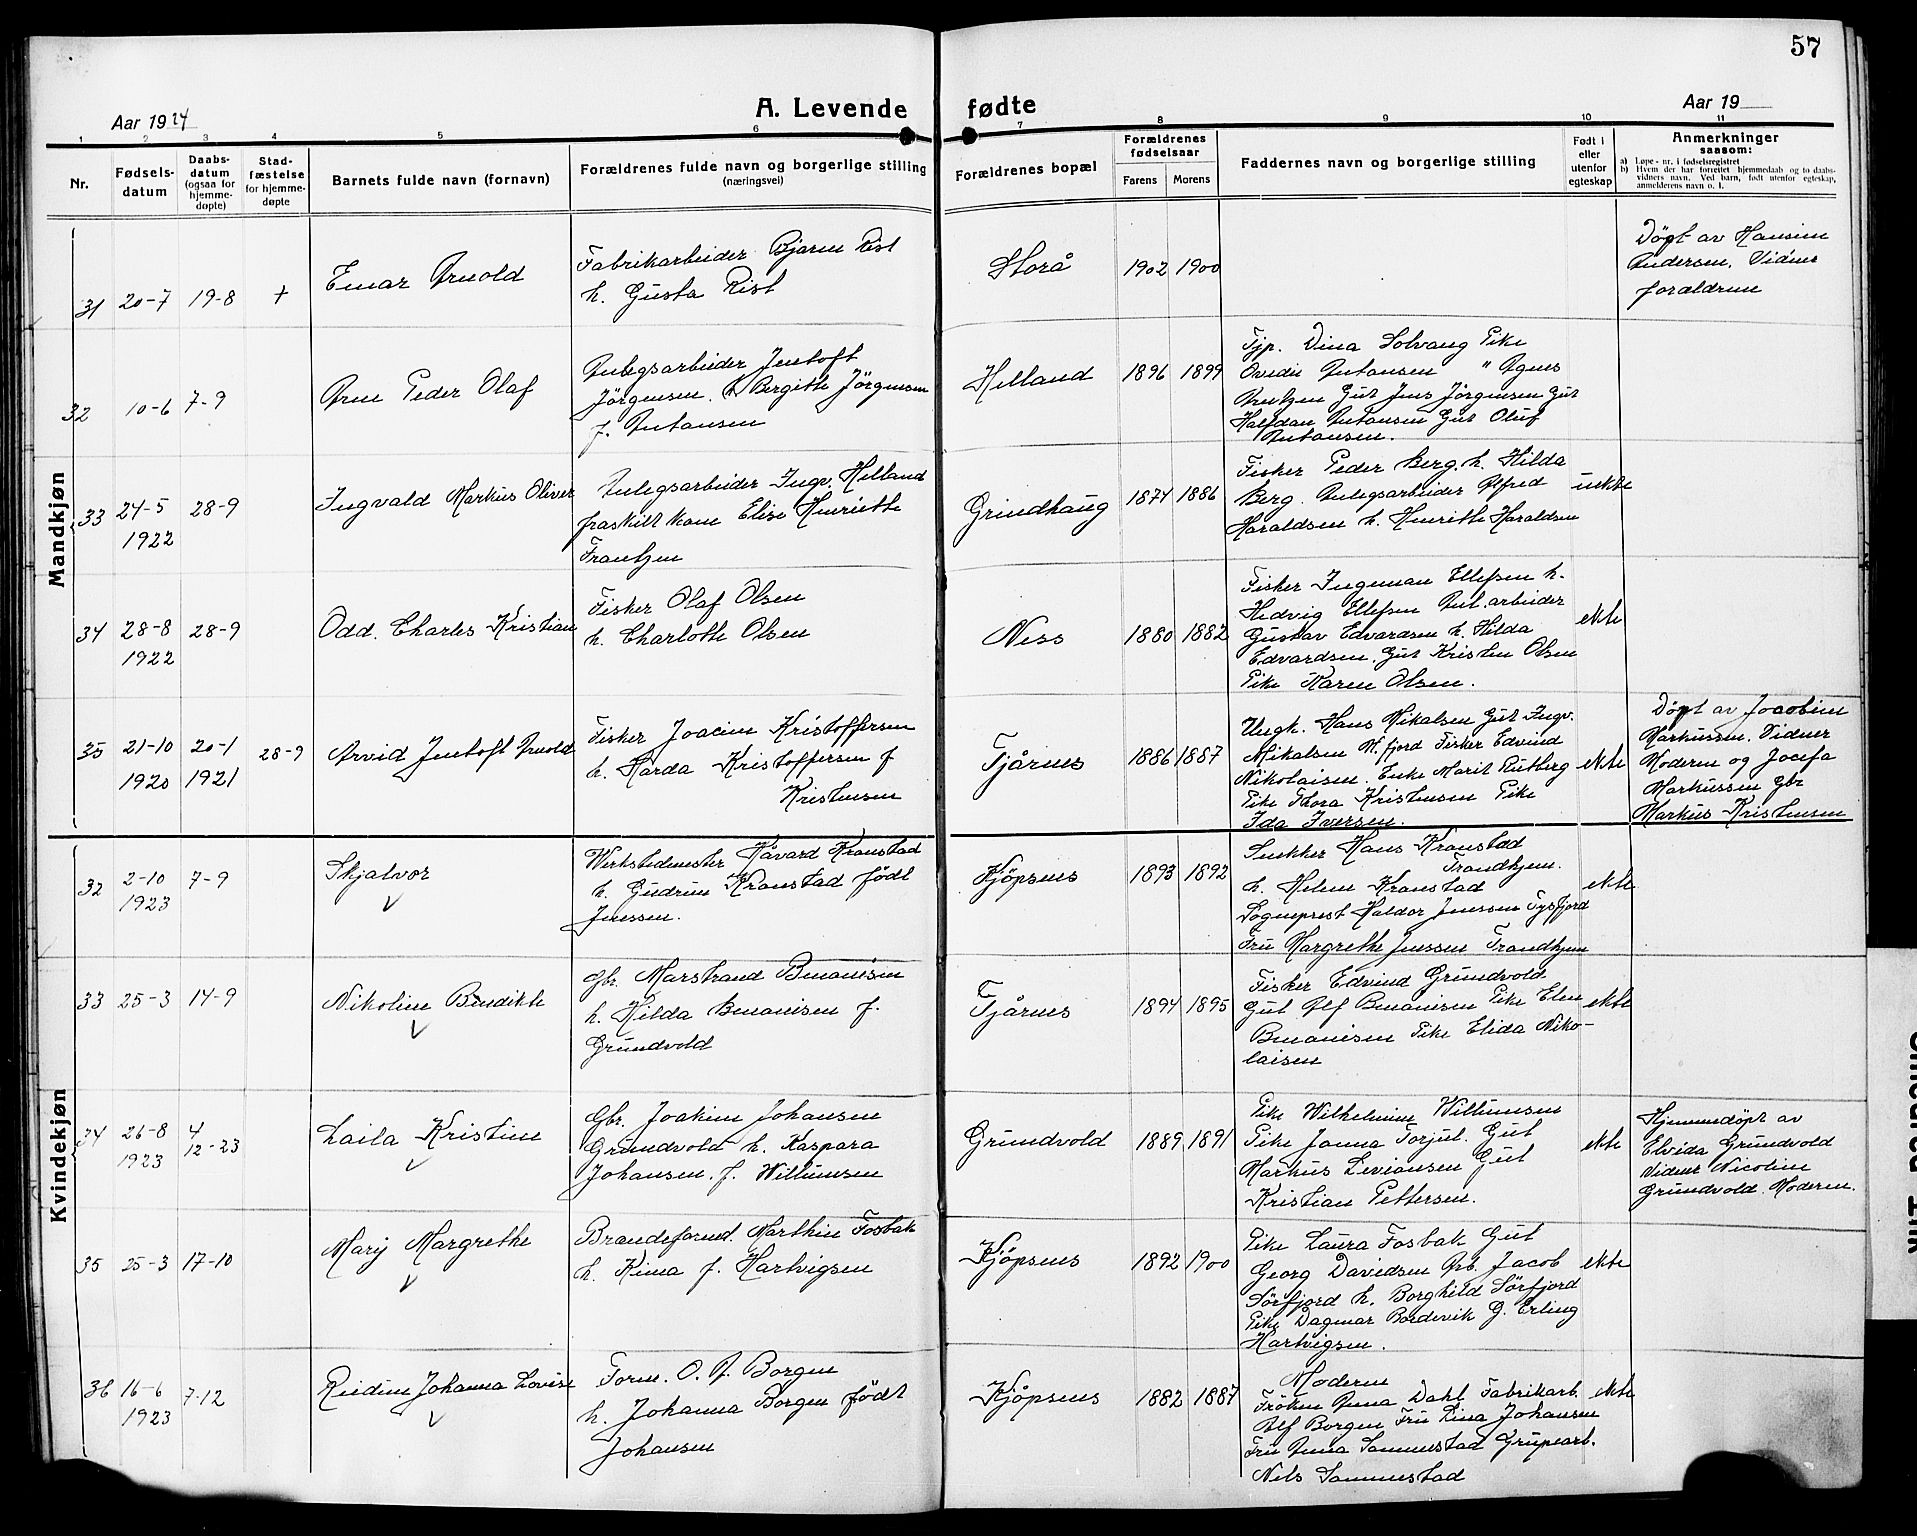 57
Aar 1924
A. Levende fødte
Aar 19
1 2 3 4 5 6 7 8 9 10 11
Nr.
Fødsels-
datum
Daabs-
datum
(ogsaa for
hjemme-
døpte)
Stad-
fæstelse
for hjemme-
døpte
Barnets fulde navn (fornavn)
Forældrenes fulde navn og borgerlige stilling
(næringsvei)
Forældrenes bopæl
Forældrenes
fødselsaar
Farens Morens
Faddernes navn og borgerlige stilling
Født i
eller
utenfor
egteskap
Anmerkninger
saasom:
a) Løpe-nr. i fødselsregistret
b) Hvem der har forrettet hjemmedaab og to daabs-
vidners navn. Ved barn, født utenfor egteskap,
anmelderens navn o. l.
Mandkjøn
31 20-7 19-8 +
Einar Arnold
Fabrikarbeider Bjarne Rist
h. Gusta Rist
Storå
1902 1900
Döpt av Hansine
Andersen. Vidner
forældrene
32 10-6 7-9
Arne Peder Olaf
Anlegsarbeider Jentoft
Jörgensen. h Bergitte Jörgensen
f. Antonsen
Helland
1896 1899
Fjp. Dina Solvang Pike
Ovedie Antonsen " Agnes
Gut Jens Jörgensen Gut
Halfdan Antonsen Gut Oluf
Antonsen.
33 24-5 28-9
1922
Ingvald Markus Oliver
Anlegsarbeider Ingv. Helland
fraskilt kone Elise Henriette
Frantzen
Grindhaug
1874 1886
Fisker Peder Berg. h. Hilda
Berg. Anlegsarbeider Alfred
Haraldsen h. Henriette Haraldsen
uekte
34 28-8 28-9
1922
Odd. Charles Kristian
Fisker Olaf Olsen
h. Charlotte Olsen
Ness
1880 1882
Fisker Ingeman Ellefsen h.
Hedvig Ellefsen Anl. arbeider
Gustav Edvardsen h. Hilda
Edvardsen. Gut Kristen Olsen
Pike Karen Olsen.
ekte
35 21-10 20-1 28-9
1920 1921
Arvid Jentoft Arnold
Fisker Joacim Kristoffersen
h. Harda Kristoffersen f
Kristensen
Tjårnes
1886 1887
Ungk. Hans Mikalsen Gut Ingv.
Mikalsen M. fjord Fisker Edvind
Nikolaisen. Enke Marit Rutberg
Pike Thora Kristensen Pike
Ida Iversen.
ekte
Döpt av Jacobine
Markussen. Vidner
Moderen og Josefa
Markussen Gbr
Markus Kristensen
Kvindekjøn
32 2-10 7-9
1923
Skjalvor
Verkstedmester Håvard Kranstad
h. Gudrun Kranstad født
Jenssen.
Kjöpsnes
1893 1892
Snekker Hans Kranstad
Trondhjem.
h. Helene Kranstad
Sogneprest Haldor Jenssen Tysfjord
Fru Margrethe Jenssen Trondhjem
ekte
33 25-3 14-9
Nikoline Bendikte
Gbr. Marstrand Benonisen
h. Hilda Benonisen f.
Grundvold
Tjårnes
1894 1895
Fisker Edvind Grundvold
Gut Alf Benonisen Pike Elen
Benonisen Pike Elida Niko-
laisen
ekte
34 26-8 4
1923 12-23
Laila Kristine
Gbr. Joakim Johansen
Grundvold h. Kaspara
Johansen. f. Willumsen
Grundvold
1889 1891
Pike Wilhelmine Willumsen
Pike Janna Torjul. Gut
Markus Levionsen Gut
Kristian Pettersen.
ekte
Hjemmedöpt av
Elvida Grundvold
Vidner Nicoline
Grundvold. Moderen.
35 25-3 17-10
Mary Margrethe
Brandeformd. Marthin Fosbak
h. Rima f. Hartvigsen
Kjöpsnes
1892 1900
Pike Laura Fosbak Gut
Georg Davidsen Arb. Jacob
Sörfjord h. Borghild Sörfjord
Pike Dagmar Bordevik G. Erling
Hartvigsen.
ekte
36 16-6 7-12
1923
Reidun Johanna Lovise
Form. O. A. Borgen
h. Johanna Borgen født
Johansen
Kjöpsnes
1882 1887
Moderen
Fröken Anna Dahl Fabrikarb.
Alf Borgen Fru Lina Johansen
Fru Anna Sommerstad Grupearb.
Nels Sommerstad
ekte